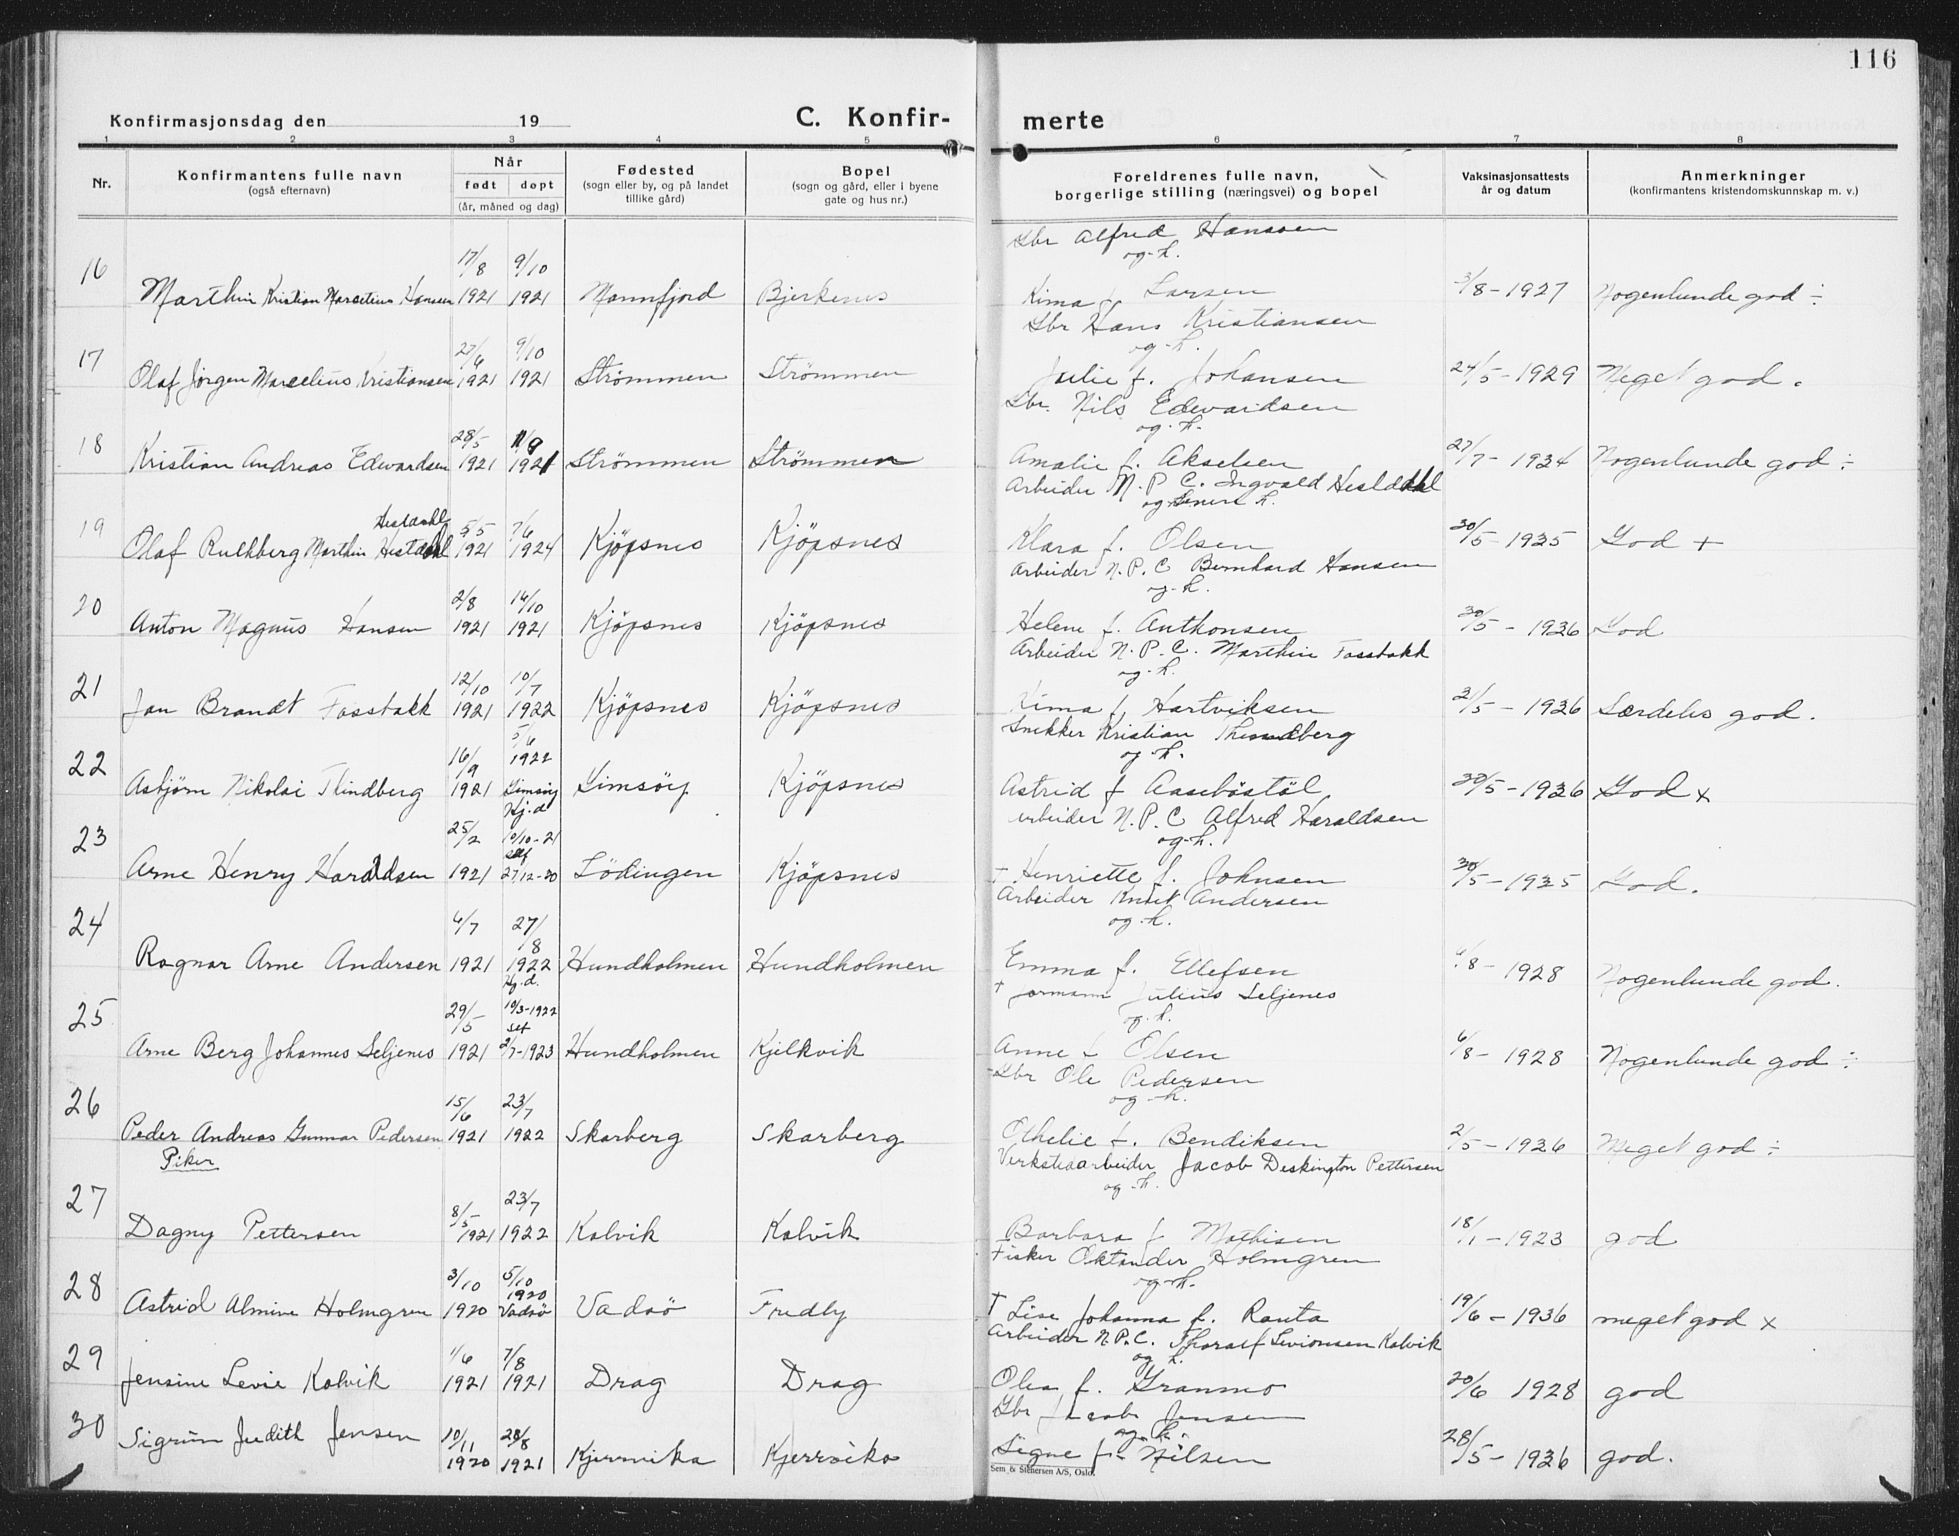 116
Konfirmasjonsdag den 19
C. Konfir-
merte
1 2 3 4 5 6 7 8
Nr.
Konfirmantens fulle navn
(også efternavn)
Når
født døpt
(år, måned og dag)
Fødested
(sogn eller by, og på landet
tillike gård)
Bopel
(sogn og gård, eller i byene
gate og hus nr.)
Foreldrenes fulle navn,
borgerlige stilling (næringsvei) og bopel
Vaksinasjonsattests
år og datum
Anmerkninger
(konfirmantens kristendomskunnskap m. v.)
Gbr Alfred Hanssen
og h.
16 Marthin Kristian Marselius Hansen 17/8 1921 9/10 1921 Mannfjord Bjerkenes Kima f Larsen 3/8-1927 Nogenlunde god ÷
Gbr Hans Kristiansen
og h.
17 Olaf Jörgen Marcelius Kristiansen 27/6 1921 9/10 1921 Strömmen Strömmen Julie f. Johansen 24/5-1929 Meget god.
Gbr. Nils Edvardsen
og h.
18 Kristian Andreas Edvardsen 28/5 1921 11/9 1921 Strömmen Strömmen Amalie f. Akselsen 27/7-1934 Nogenlunde god ÷
Arbeider N. P. C. Ingvald Hestdahl
og h.
19 Olaf Marthin Hestdahl 5/5 1921 7/6 1924 Kjöpsnes Kjöpsnes Klara f. Olsen 30/5-1935 God +
Hestdahl
Arbeider N. P. C Bernhard Hansen
og h.
20 Anton Magnus Hansen 2/8 1921 14/10 1921 Kjöpsnes Kjöpsnes Helene f. Anthonsen 30/5-1936 God
Arbeider N. P. C. Marthin Fosstakk
og h.
21 Jan Brandt Fosstakk 12/10 1921 10/7 1922 Kjöpsnes Kjöpsnes Kima f Hartviksen 2/5-1936 Særdeles god.
Snekker Kristian Thindberg
og h.
22 Asbjørn Nikolai Thindberg 16/9 1921 5/6 1922 Gimsöy Kj.d Gimsöy Kjöpsnes Astrid f Aaseböstöl 30/5-1936 God x
arbeider N. P. C Alfred Haraldsen
og h.
23 Arne Henry Haraldsen 25/2 1921 10/10-21 27/12-20 Lödingen Kjöpsnes † Henriette f. Johnsen 30/5-1935 God.
Arbeider Knut Andersen
og h.
24 Ragnar Arne Andersen 6/7 1921 27/8 1922 Hj.d. Hundholmen Hundholmen Emma f. Ellefsen 6/8-1928 Nogenlunde god.
† Formann Julius Seljenes
og h.
25 Arne Berg Johannes Seljenes 29/5 1921 10/3-1922 2/7-1923 Hundholmen Kjelkvik Anne f Olsen 6/8-1928 Nogenlunde god ÷
Gbr Ole Pedersen
og h.
26 Peder Andreas Gunnar Pedersen 15/6 1921 23/7 1922 Skarberg Skarberg Othelie f. Bendiksen 2/5-1936 Meget god ÷
Piker
Verkstedarbeider Jacob Deskington Pettersen
og h.
27 Dagny Pettersen 8/5 1921 23/7 1922 Kalvik Kalvik Barbara f Mathisen 18/1-1923 god
Fisker Oktander Holmgren
og h.
28 Astrid Almine Holmgren 3/10 1920 5/10 1920 Vadsö Vadsö Fredly † Lise Johanna f. Ranta 19/6-1936 meget god x
Arbeider N.P.C. Thoralf Sevionsen Kalvik
og h.
29 Jensine Levie Kalvik 1/6 1921 7/8 1921 Drag Drag Olea f. Granmo 20/6 1928 god
Gbr Jacob Jensen
og h.
30 Sigrun Judith Jensen 10/11 1920 28/8 1921 Kjerrvika Kjerrvika Signe f. Nilsen 28/5-1936 god.
Sem & Stenersen A/S, Oslo.